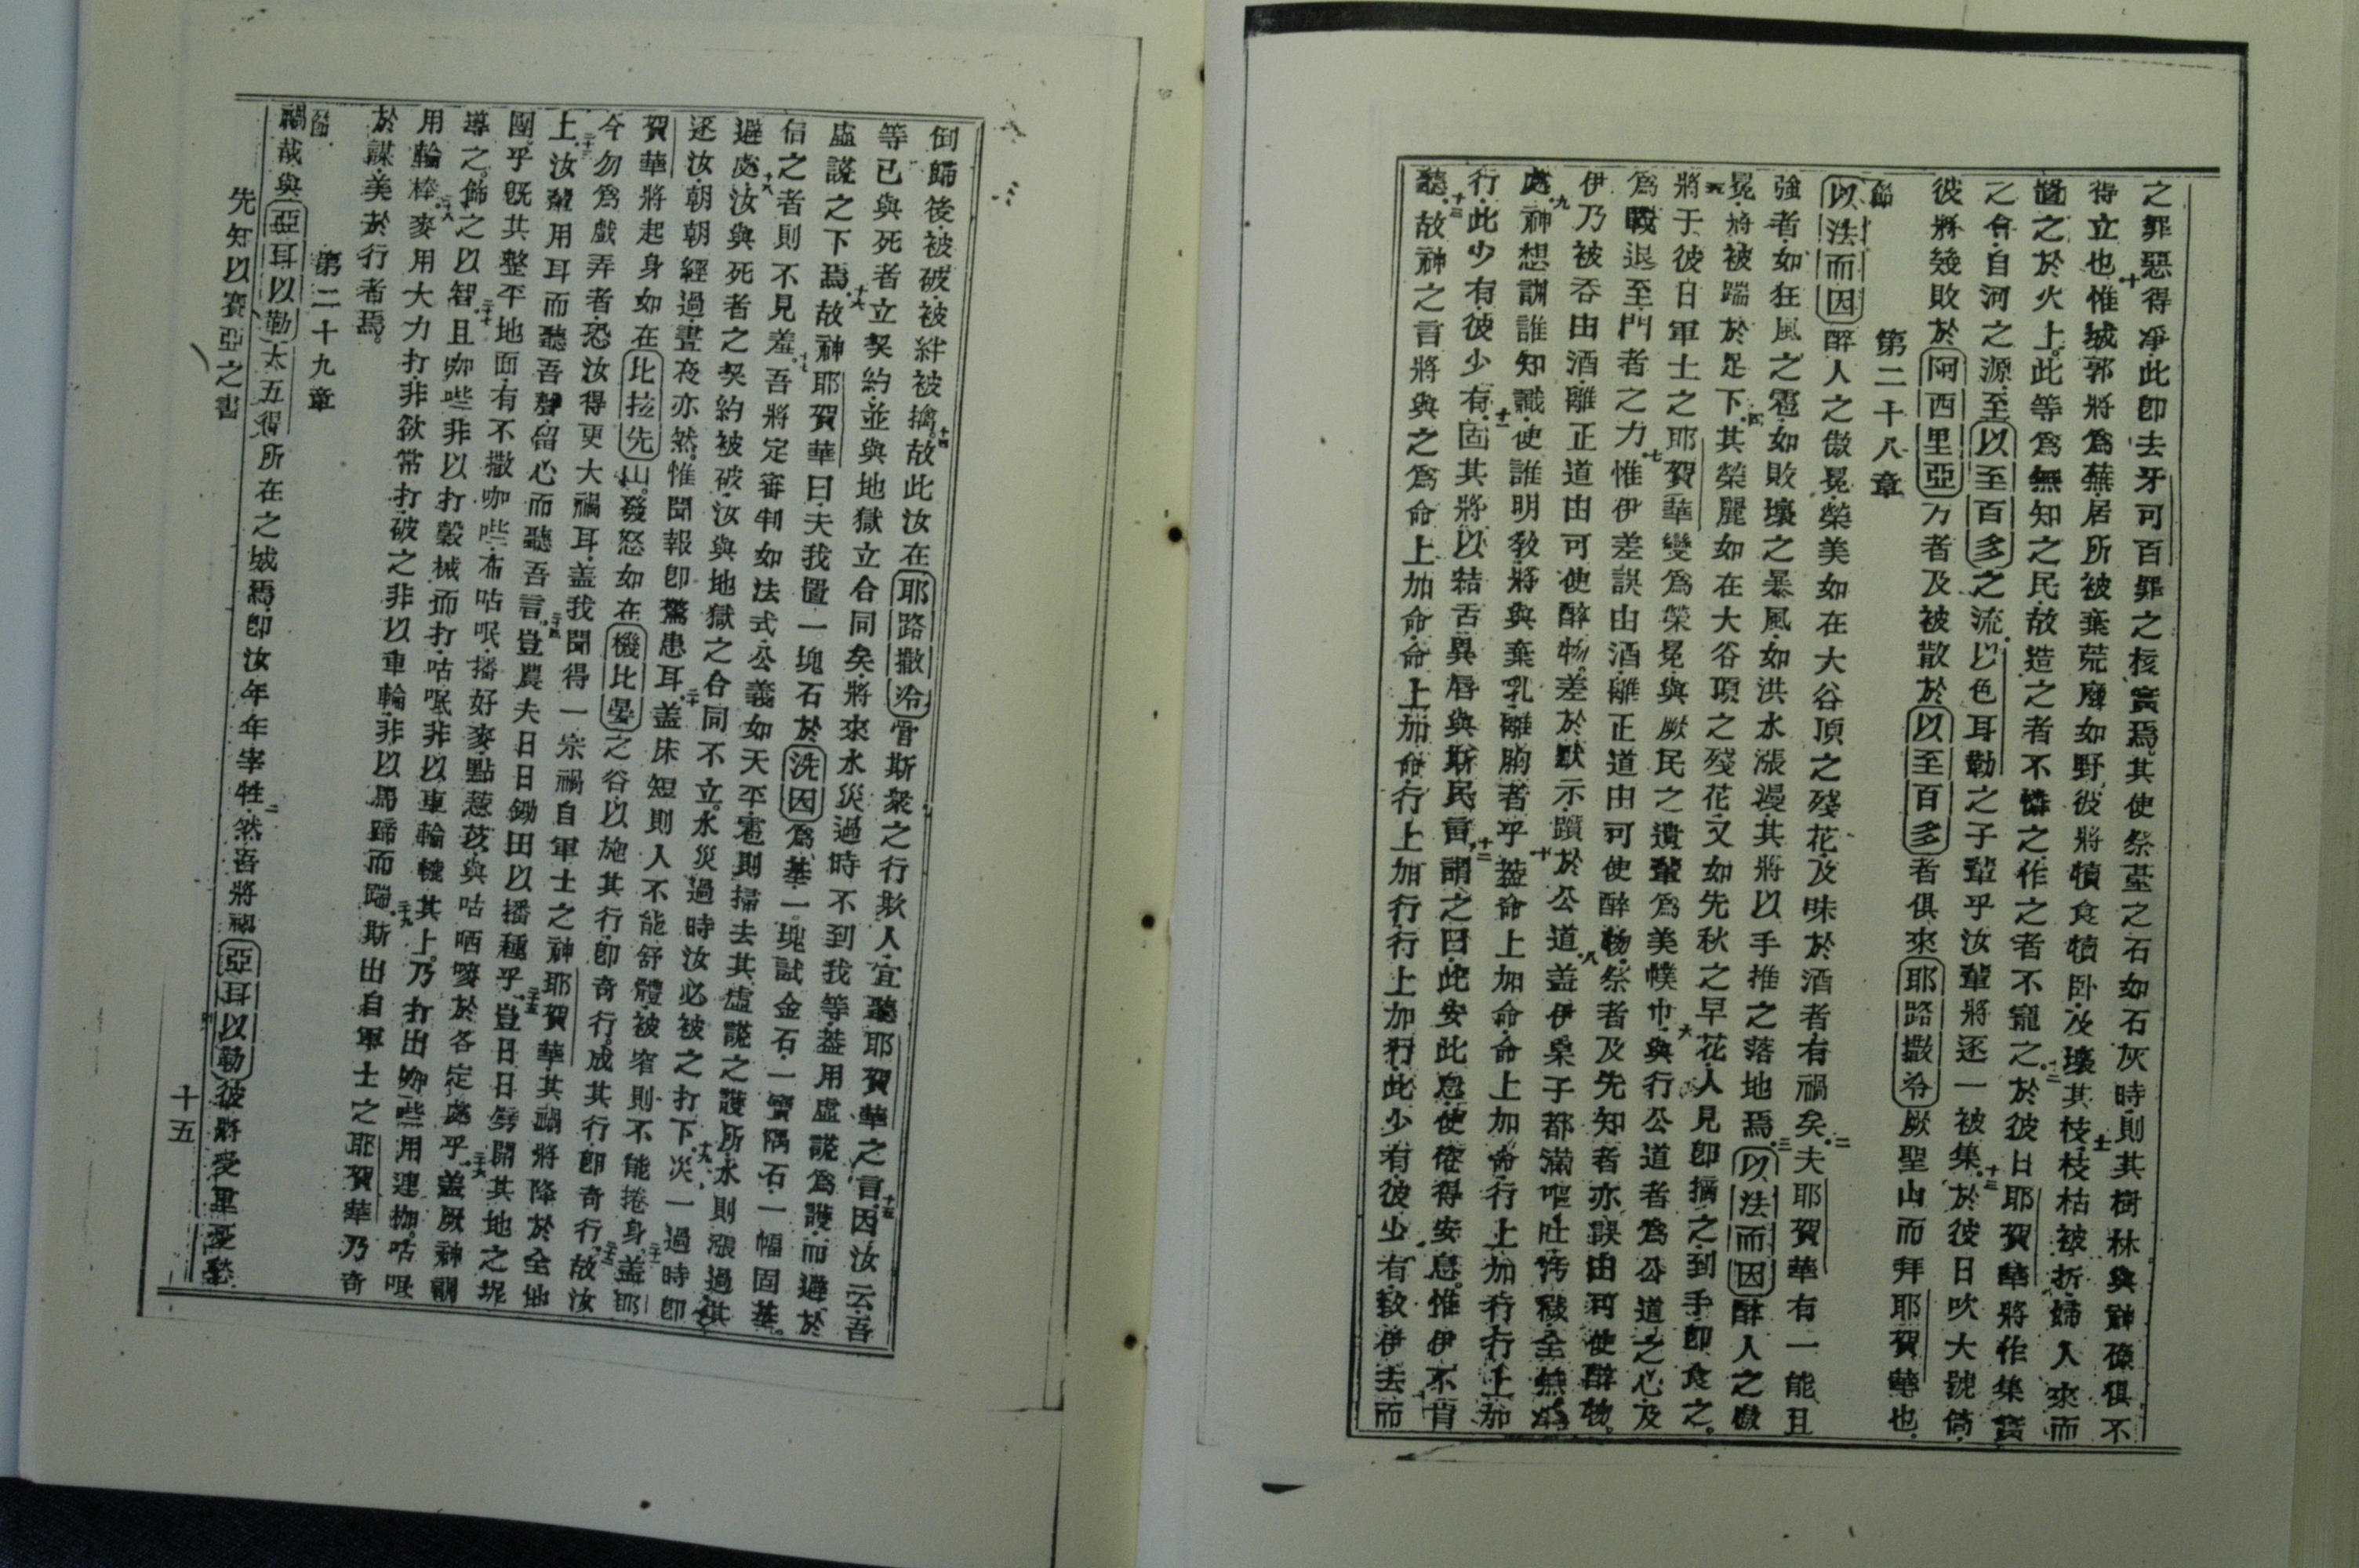 之罪惡得凈此卽去牙可百罪之核實焉其使祭㙜之石如石灰時則其樹林與神像俱不
得立也惟城郭將爲蕪居所被棄荒廢如野彼將犢食犢卧及壞其枝枝枯被折婦人來而
置之於火上此等爲無知之民故造之者不憐之作之者不寵之於彼日耶賀華將作集實
之會自河之源至以至百多之流以色耳勒之子輩乎汝輩將逐一被集於彼日吹大號筒
彼將幾敗於阿西里亞方者及被散於以至百多者俱來耶路撒冷厥聖山而拜耶賀華也
第二十八章
節
以法而因醉人之傲冕榮美如在大谷頂之殘花及味於酒者有禍矣夫耶賀華有一能且
強者如狂風之雹如敗壞之暴風如洪水漲漫其將以手推之落地焉以法而因醉人之傲
冕將被踹於足下其榮麗如在大谷項之殘花又如先秋之早花人見卽摘之到手卽食之
將于彼日軍士之耶賀華變爲榮冕與厥民之遺輩爲美幞巾與行公道者爲公道之心及
爲戰退至門者之力惟伊差誤由酒離正道由可使醉物祭者及先知者亦誤由可使醉物
伊乃被吞由酒離正道由可使醉物差於默示躓於公道蓋伊桌子都滿嘔吐污穢全無
處神想訓誰知識使誰明敎將與棄乳離胸者乎蓋命上加命命上加命行上加行行上加
行此少有彼少有固其將以結舌異唇與斯民言謂之曰此安此息使倦得安息惟伊不肯
聽故神之言將與之爲命上加命命上加命行上加行行上加行此少有彼少有致伊去而
倒歸後被破被絆被擒故此汝在耶路撒冷管斯衆之行欺人宜聽耶賀華之言因汝云吾
等已與死者立契約並與地獄立合同矣將來水災過時不到我等蓋用虛謊爲護而避於
虛謊之下焉故神耶賀華曰夫我置一塊石於洗因爲基一塊試金石一寶隅石一幅固基
信之者則不見羞吾將定審判如法式公義如天平雹則掃去其虛謊之護所水則漲過其
避處汝與死者之契約被破汝與地獄之合同不立水災過時汝必被之打下災一過時卽
逐汝朝朝經過晝夜亦然惟聞報卽驚患耳蓋床短則人不能舒體被窄則不能捲身蓋耶
賀華將起身如在比拉先山發怒如在機比晏之谷以施其行卽奇行成其行卽奇行故汝
今勿爲戲弄者恐汝得更大禍耳蓋我聞得一宗禍自軍士之神耶賀華其禍將降於全地
上汝輩用耳而聽吾聲留心而聽吾言豈農夫日日鋤田以播種乎豈日日劈開其地之坭
團乎旣其整平地面有不撒咖哔布咕呡播好麥點薏苡與咕哂嘜於各定處乎蓋厥神訓
導之飾之以智且咖哔非以打穀械而打咕呡非以車輪轆其上乃打出咖哔用連枷咕呡
用輪棒麥用大力打非欲常打破之非以車輪非以馬蹄而踹斯出自軍士之耶賀華乃奇
於謀美於行者焉
第二十九章
節
禍哉與亞耳以勒大五得所在之城焉卽汝年年宰牲然吾將禍亞耳以勒彼將受重憂愁
先知以賽亞之書
十五